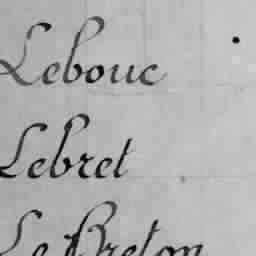 Lebouc
Lebret
Le Breton